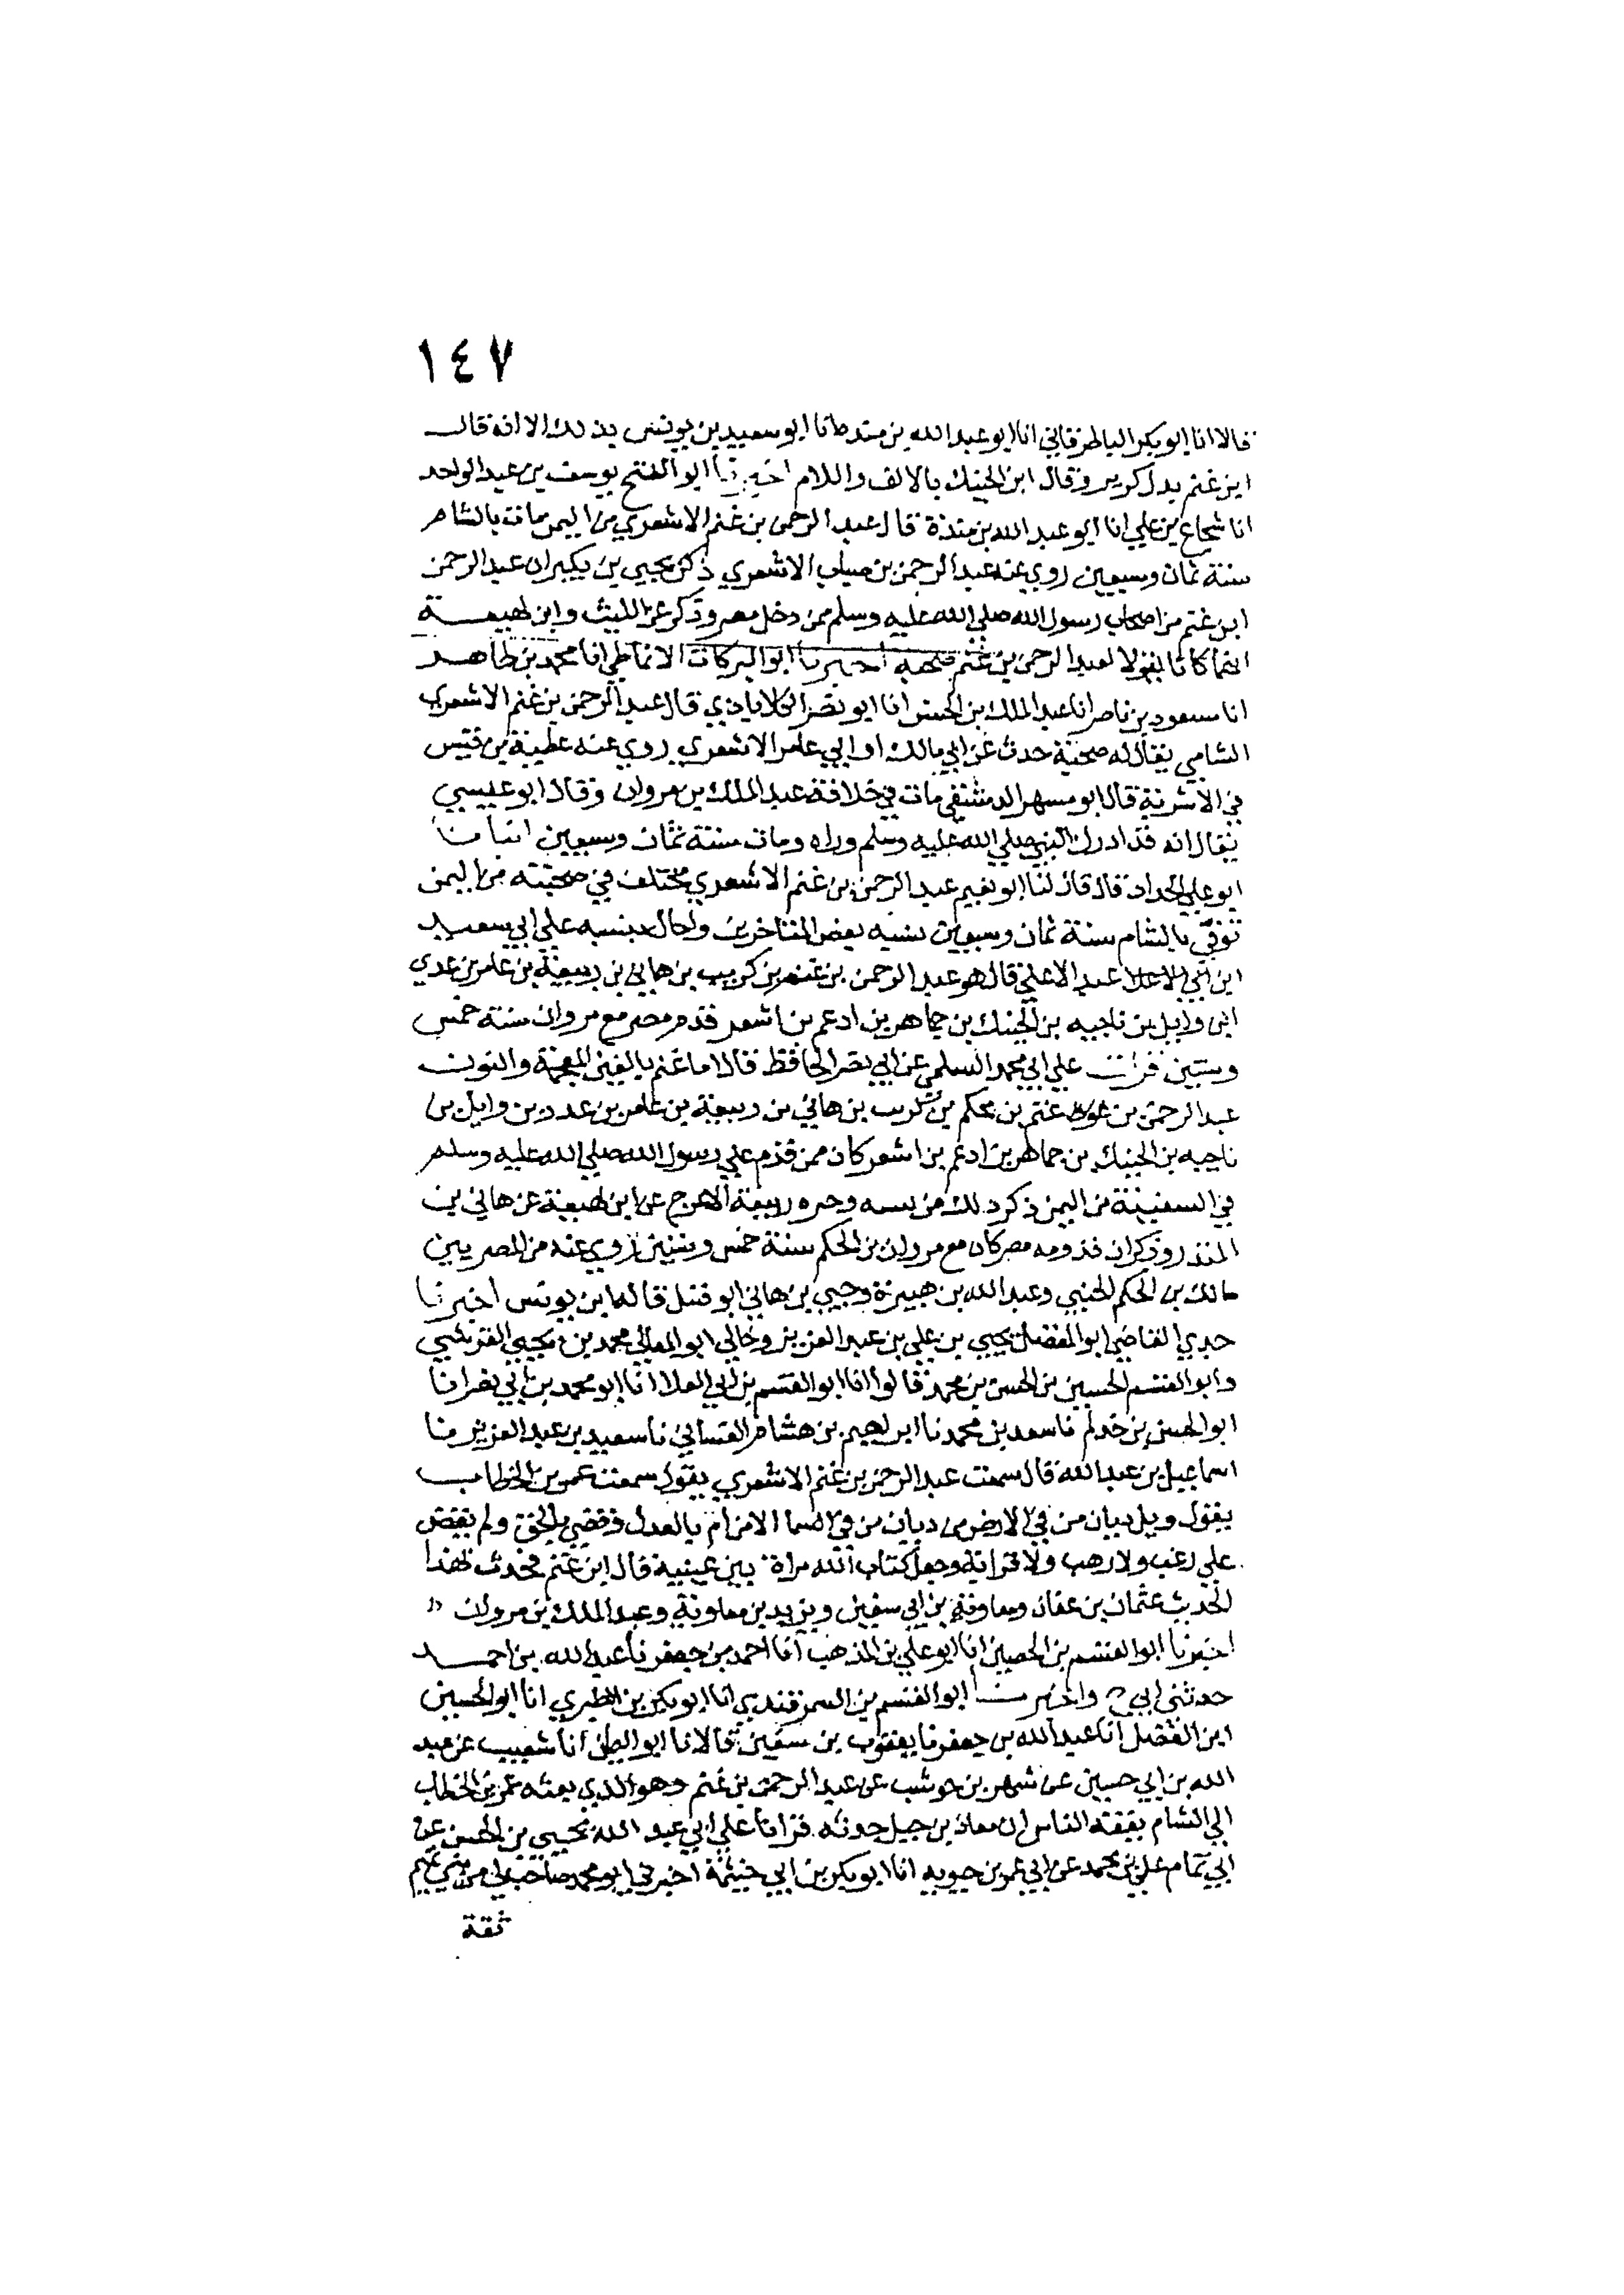 ١٤٧
قالا انا ابو بكر الباطرقاني انا ابو عبد الله بن مندة انا ابو سعيد بن يونس بذلك الا انه قال
ابن غنم بدل كريب وقال ابن الحنيك بالالف واللام اخبرنا ابو الفتح يوسف بن عبد الواحد
انا شجاع بن علي انا ابو عبد الله بن مندة قال عبد الرحمن بن غنم الاشعري من اليمن مات بالشام
سنة ثمان وسبعين روي عنه عبد الرحمن بن صباب الاشعري ذكر يحيي بن بكير ان عبد الرحمن
ابن غنم من اصحاب رسول الله صلي الله عليه وسلم ممن دخل مصر وذكر عن الليث وابن لهيعة
انهما كانا يقولا لعبد الرحمن بن غنم صحبه اخبرنا ابو البركات الانماطي انا محمد بن طاهر
انا مسعود بن ناصر انا عبد الملك بن الحسن انا ابو نصر الكلاباذي قال عبد الرحمن بن غنم الاشعري
الشامي يقال له صحبة حدث عن ابي مالك او ابي عامر الاشعري روي عنه عطية بن قيس
في الاشربة قال ابو مسهر الدمشقي مات في خلافة عبد الملك بن مروان وقال ابو عيسي
يقال انه قد ادرك النبي صلي الله عليه وسلم وراه ومات سنة ثمان وسبعين انبانا
ابو علي الحداد قال قال لنا ابو نعيم عبد الرحمن بن غنم الاشعري مختلف في صحبته من اليمن
توفي بالشام سنة ثمان وسبعين نسبه بعض المتاخرين واحال بنسبه علي ابي سعيد
ابن ابي الاعلا عبد الاعلي قال هو عبد الرحمن بن غنم بن كريب بن هاني بن ربيعة بن عامر بن عدي
ابن وايل بن ناجيه بن الحنيك بن جماهر بن ادعم بن اشعر قدم مصر مع مروان سنة خمس
وستين قرات علي ابي محمد السلمي عن ابي نصر الحافظ قال اما غنم بالغين المعجمة والنون
عبد الرحمن بن غنم بن محكم بن كريب بن هاني بن ربيعة بن عامر بن عدد بن وايل بن
ناجيه بن الحنيك بن جماهر بن ادعم بن اشعر كان ممن قدم علي رسول الله صلي الله عليه وسلم
في السفينة من اليمن ذكر ذلك من نسبه وخبره ربيعة الاعرج عن ابن لهيعة عن هاني بن
المنذر وذكر ان قدومه مصر كان مع مروان بن الحكم سنة خمس وستين روي عنه من المصريين
مالك بن الحكم الجنبي وعبد الله بن هبيرة وحيي بن هاني ابو قبيل قاله ابن يونس اخبرنا
جدي القاضي ابو المفضل يحيي بن علي بن عبد العزيز وخالي ابو المعالي محمد بن يحيي القرشي
وابو القسم الحسين بن الحسن بن محمد قالوا انا ابو القسم بن ابي العلا انا ابو محمد بن ابي نصر انا
ابو الحسن بن حذلم نا سعد بن محمد نا ابراهيم بن هشام الغساني نا سعيد بن عبد العزيز نا
اسماعيل بن عبد الله قال سمعت عبد الرحمن بن غنم الاشعري يقول سمعت عمر بن الخطاب
يقول ويل ديان من في الارض من ديان من في السما الا من ام بالعدل وقضي بالحق ولم يقض
علي رغب ولا رهب ولا قرابة وجعل كتاب الله مراة بين عينيه قال ابن غنم فحدث بهذا
الحديث عثمان بن عفان ومعاوية بن ابي سفين ويزيد بن معاوية وعبد الملك بن مروان
اخبرنا ابو القسم بن الحصين انا ابو علي بن المذهب انا احمد بن جعفر نا عبد الله بن احمد
حدثني ابي ح واخبرنا ابو القسم بن السمرقندي انا ابو بكر بن الطبري انا ابو الحسين
ابن الفضل انا عبد الله بن جعفر نا يعقوب بن سفين قالا نا ابو اليمان انا شعيب عن عبد
الله بن ابي حسين عن شهر بن حوشب عن عبد الرحمن بن غنم وهو الذي بعثه عمر بن الخطاب
الي الشام يفقه الناس ان معاذ بن جبل حدثه قرانا علي ابي عبد الله يحيي بن الحسن عن
ابي تمام علي بن محمد عن ابي عمر بن حيويه انا ابو بكر بن ابي خيثمة اخبرني ابو محمد صاحب لي من بني تميم
ثقة